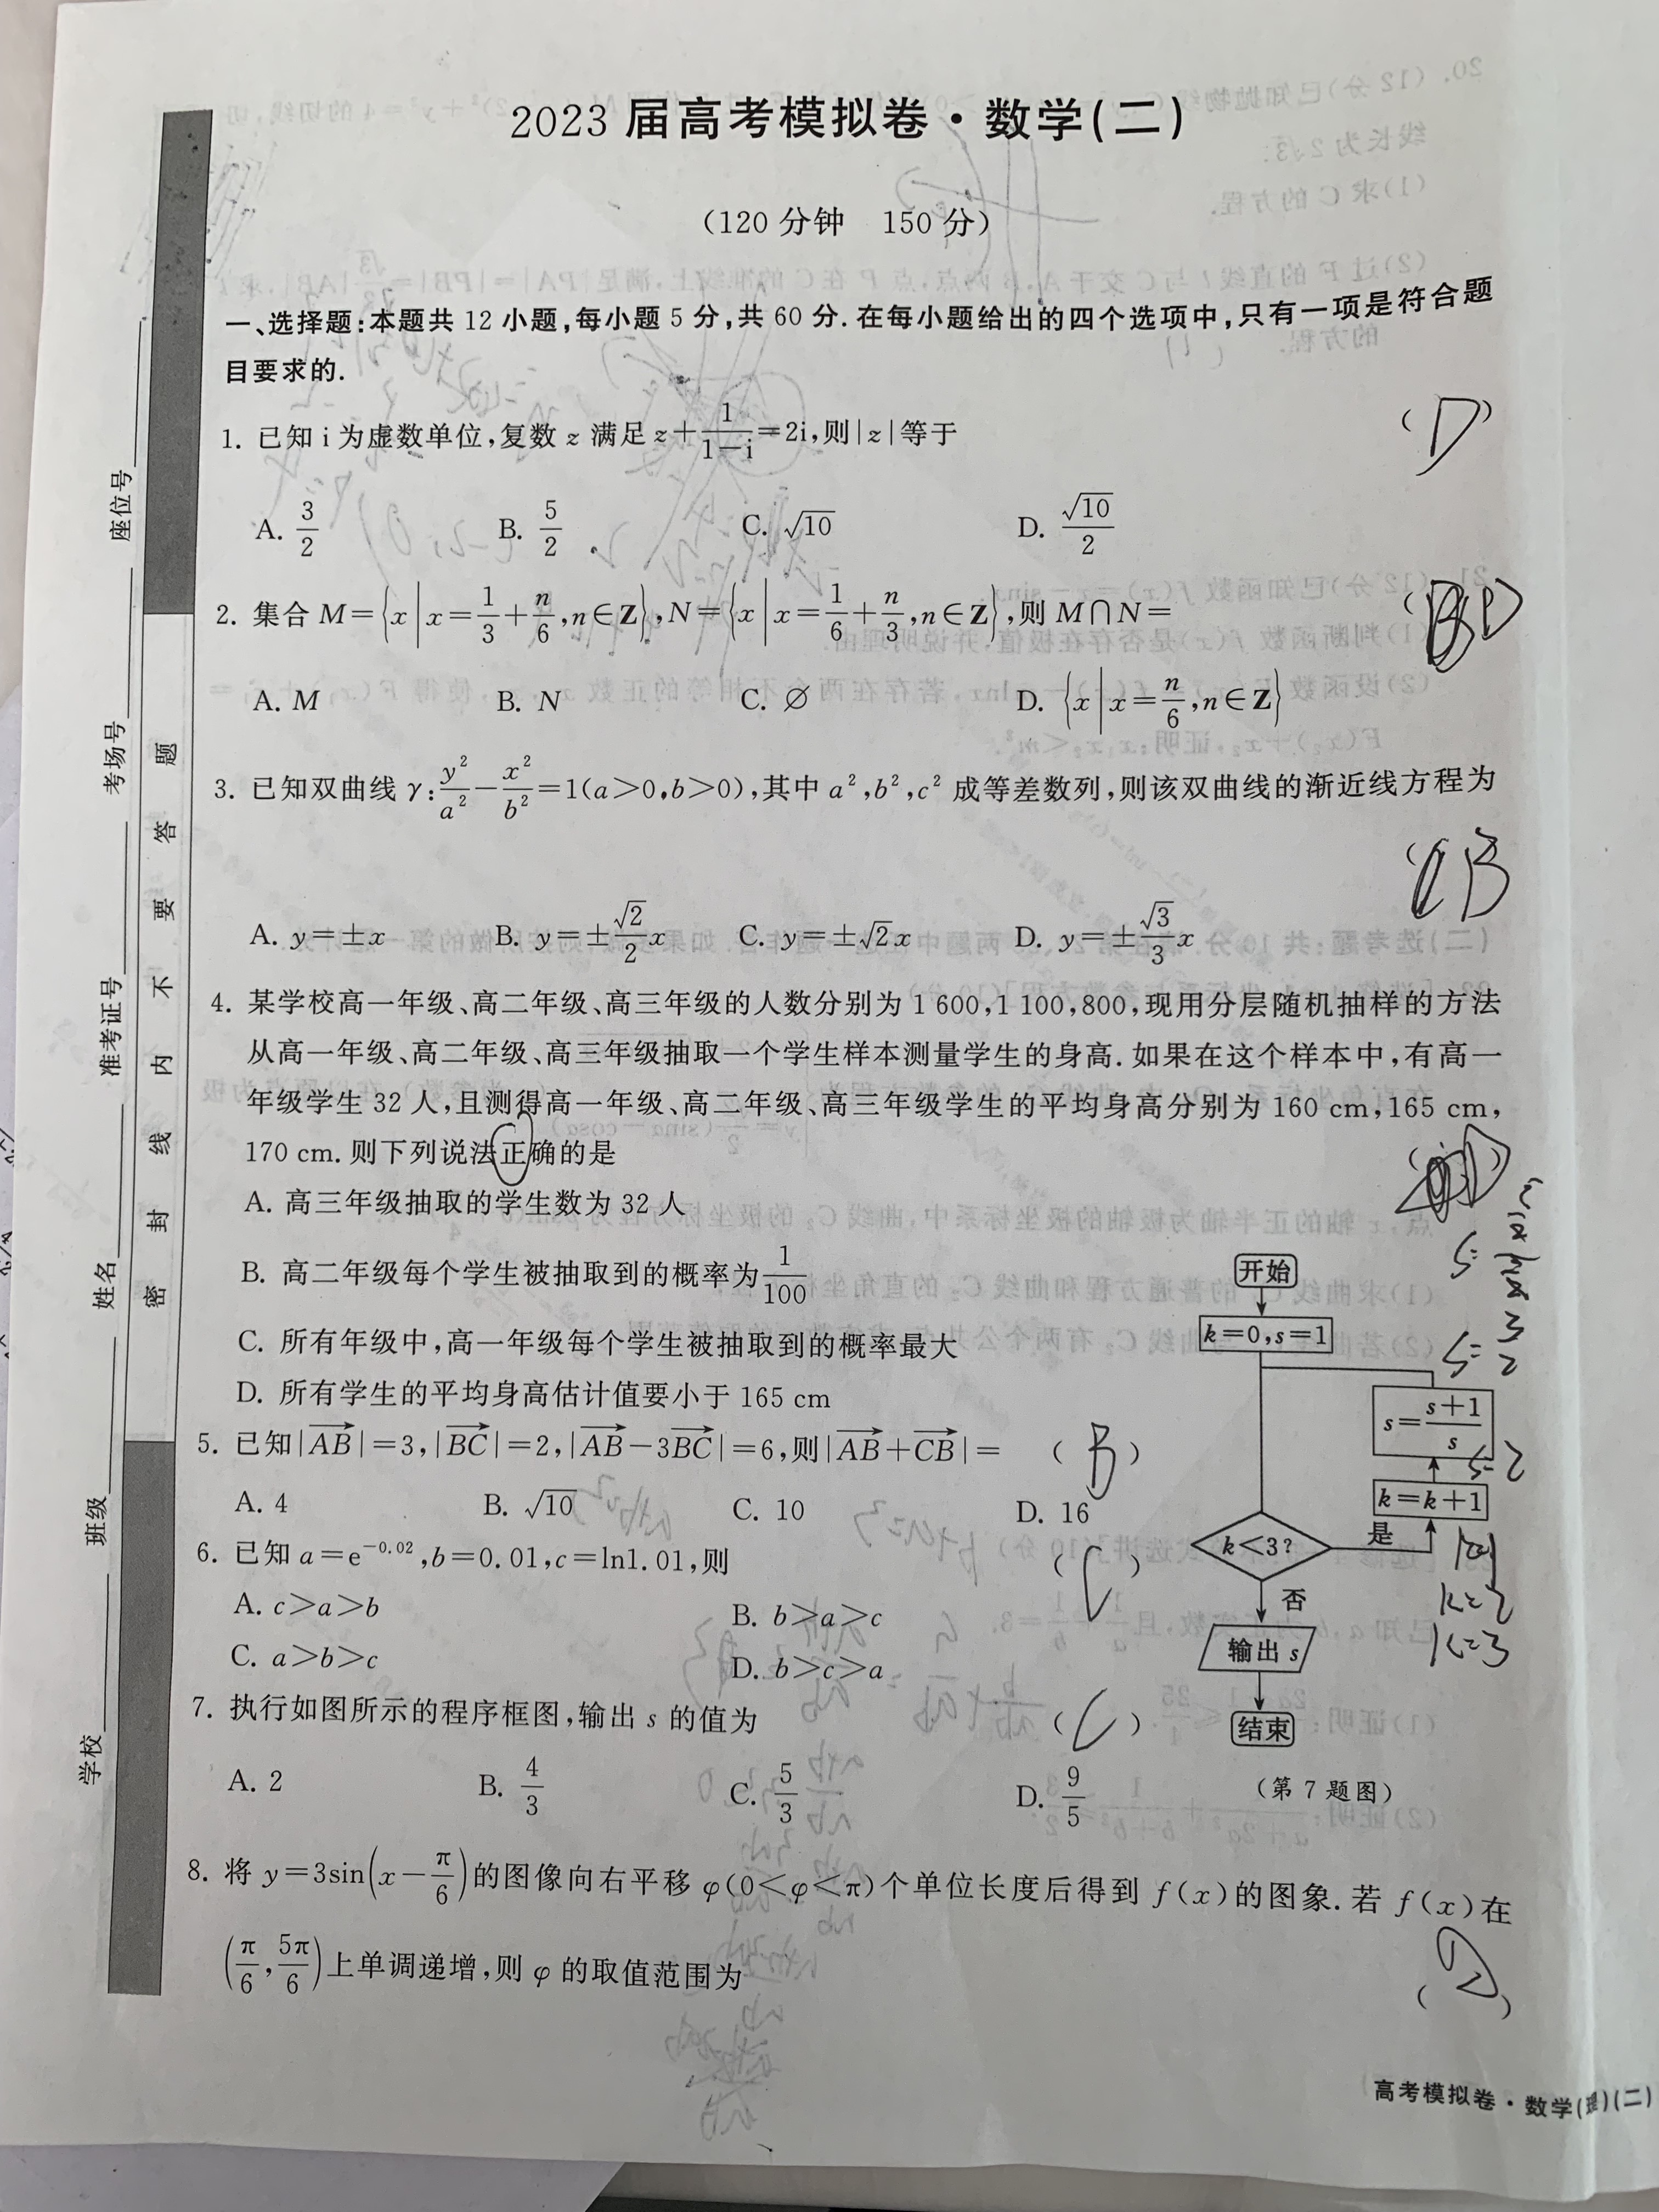 2023 届高考模拟卷·数学(二)
(120 分钟 150 分)
一、选择题:本题共 12 小题,每小题 5 分,共 60 分.在每小题给出的四个选项中,只有一项是符合题
目要求的.
1. 已知 i 为虚数单位,复数 z 满足 z+\frac{1}{1-i}=2i,则|z|等于 (D)
A. \frac{3}{2} B. \frac{5}{2} C. \sqrt{10} D. \frac{\sqrt{10}}{2}
2. 集合 M={x|x=\frac{1}{3}+\frac{n}{6},n∈Z},N={x|x=\frac{1}{6}+\frac{n}{3},n∈Z},则 M∩N= (
A. M B. N C. ∅ D. {x|x=\frac{n}{6},n∈Z}
3. 已知双曲线 γ:\frac{y²}{a²}-\frac{x²}{b²}=1(a>0,b>0),其中 a²,b²,c² 成等差数列,则该双曲线的渐近线方程为
( B
A. y=±x B. y=±\frac{\sqrt{2}}{2}x C. y=±\sqrt{2}x D. y=±\frac{\sqrt{3}}{3}x
4. 某学校高一年级、高二年级、高三年级的人数分别为 1 600,1 100,800,现用分层随机抽样的方法
从高一年级、高二年级、高三年级抽取一个学生样本测量学生的身高.如果在这个样本中,有高一
年级学生 32 人,且测得高一年级、高二年级、高三年级学生的平均身高分别为 160 cm,165 cm,
170 cm.则下列说法正确的是 ( D )
A. 高三年级抽取的学生数为 32 人
B. 高二年级每个学生被抽取到的概率为\frac{1}{100}
C. 所有年级中,高一年级每个学生被抽取到的概率最大
D. 所有学生的平均身高估计值要小于 165 cm
5. 已知|\overrightarrow{AB}|=3,|\overrightarrow{BC}|=2,|\overrightarrow{AB}-3\overrightarrow{BC}|=6,则|\overrightarrow{AB}+\overrightarrow{CB}|= (B)
A. 4 B. \sqrt{10} C. 10 D. 16
6. 已知 a=e^{-0.02},b=0.01,c=ln1.01,则 (C)
A. c>a>b B. b>a>c
C. a>b>c D. b>c>a
7. 执行如图所示的程序框图,输出 s 的值为 (C)
A. 2 B. \frac{4}{3} C. \frac{5}{3} D. \frac{9}{5}
开始
k=0,s=1
s=\frac{s+1}{s}
k=k+1
k<3?
是
否
输出 s
结束
(第 7 题图)
s=\frac{3}{2}
s=2
k=1
k=2
k=3
8. 将 y=3sin(x-\frac{π}{6})的图像向右平移 φ(0<φ<π)个单位长度后得到 f(x)的图象.若 f(x)在
(\frac{π}{6},\frac{5π}{6})上单调递增,则 φ 的取值范围为 ( )
高考模拟卷·数学(理)(二)
座位号
考场号
准考证号
姓名
班级
学校
密 封 线 内 不 要 答 题